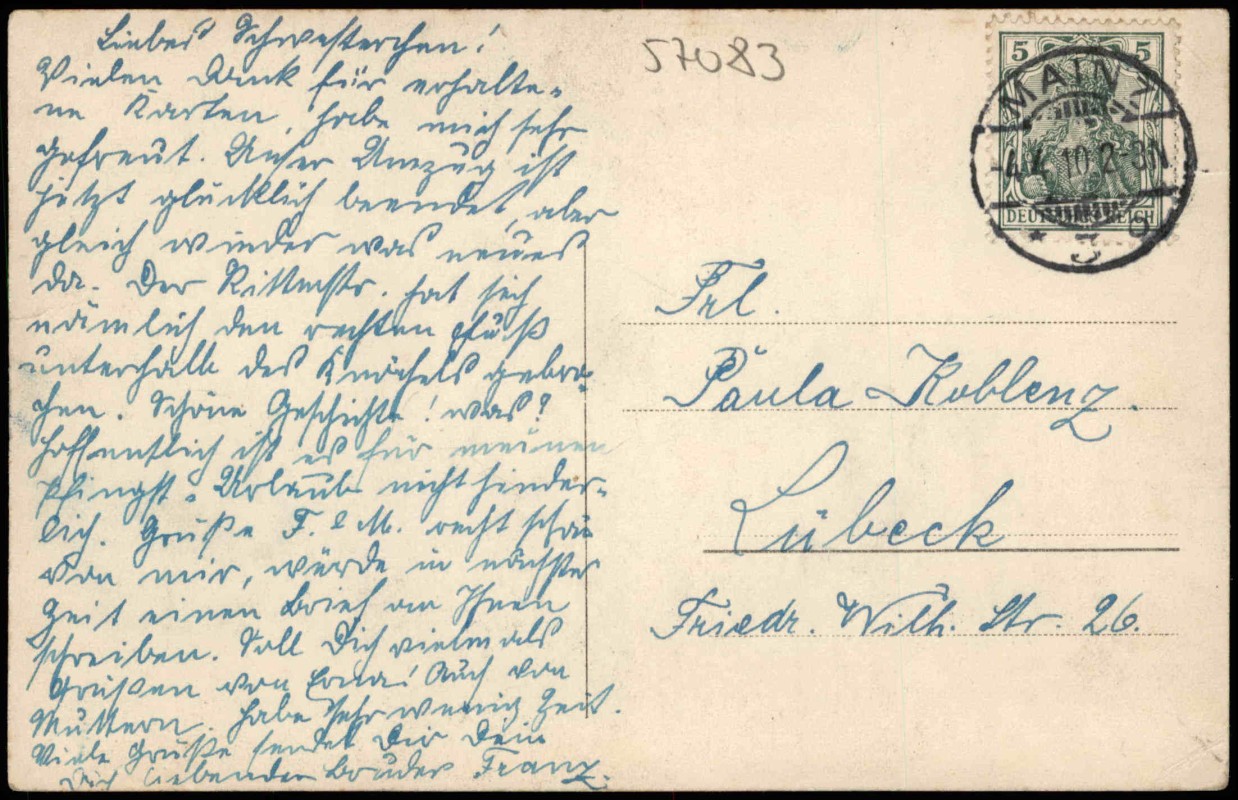 Liebes Schwesterchen!
Vielen Dank für erhalte-
ne Karten, habe mich sehr
gefreut. Unser Umzug ist
jetzt glücklich beendet, aber
gleich wieder was neues
da. Der Rittmstr. hat sich
nämlich den rechten Fuß
unterhalb des Knöchels gebro-
chen. Schöne Geschichte! was?
Hoffentlich ist es für meinen
Pfingst-Urlaub nicht hinder-
lich. Grüße F. & M. recht schön
von mir, würde in nächster
Zeit einen Brief an Ihnen
schreiben. Soll Dich vielmals
Grüßen von Erna! Auch von
Muttern. Habe sehr wenig Zeit.
Viele Grüße sendet Dir Dein
Dich liebender Bruder Franz.
57083
5 5
DEUTSCHES REICH
MAINZ
-4.4.10.2-3N
* 3
Frl.
Paula Koblenz.
Lübeck
Friedr. Wilh. Str. 26.